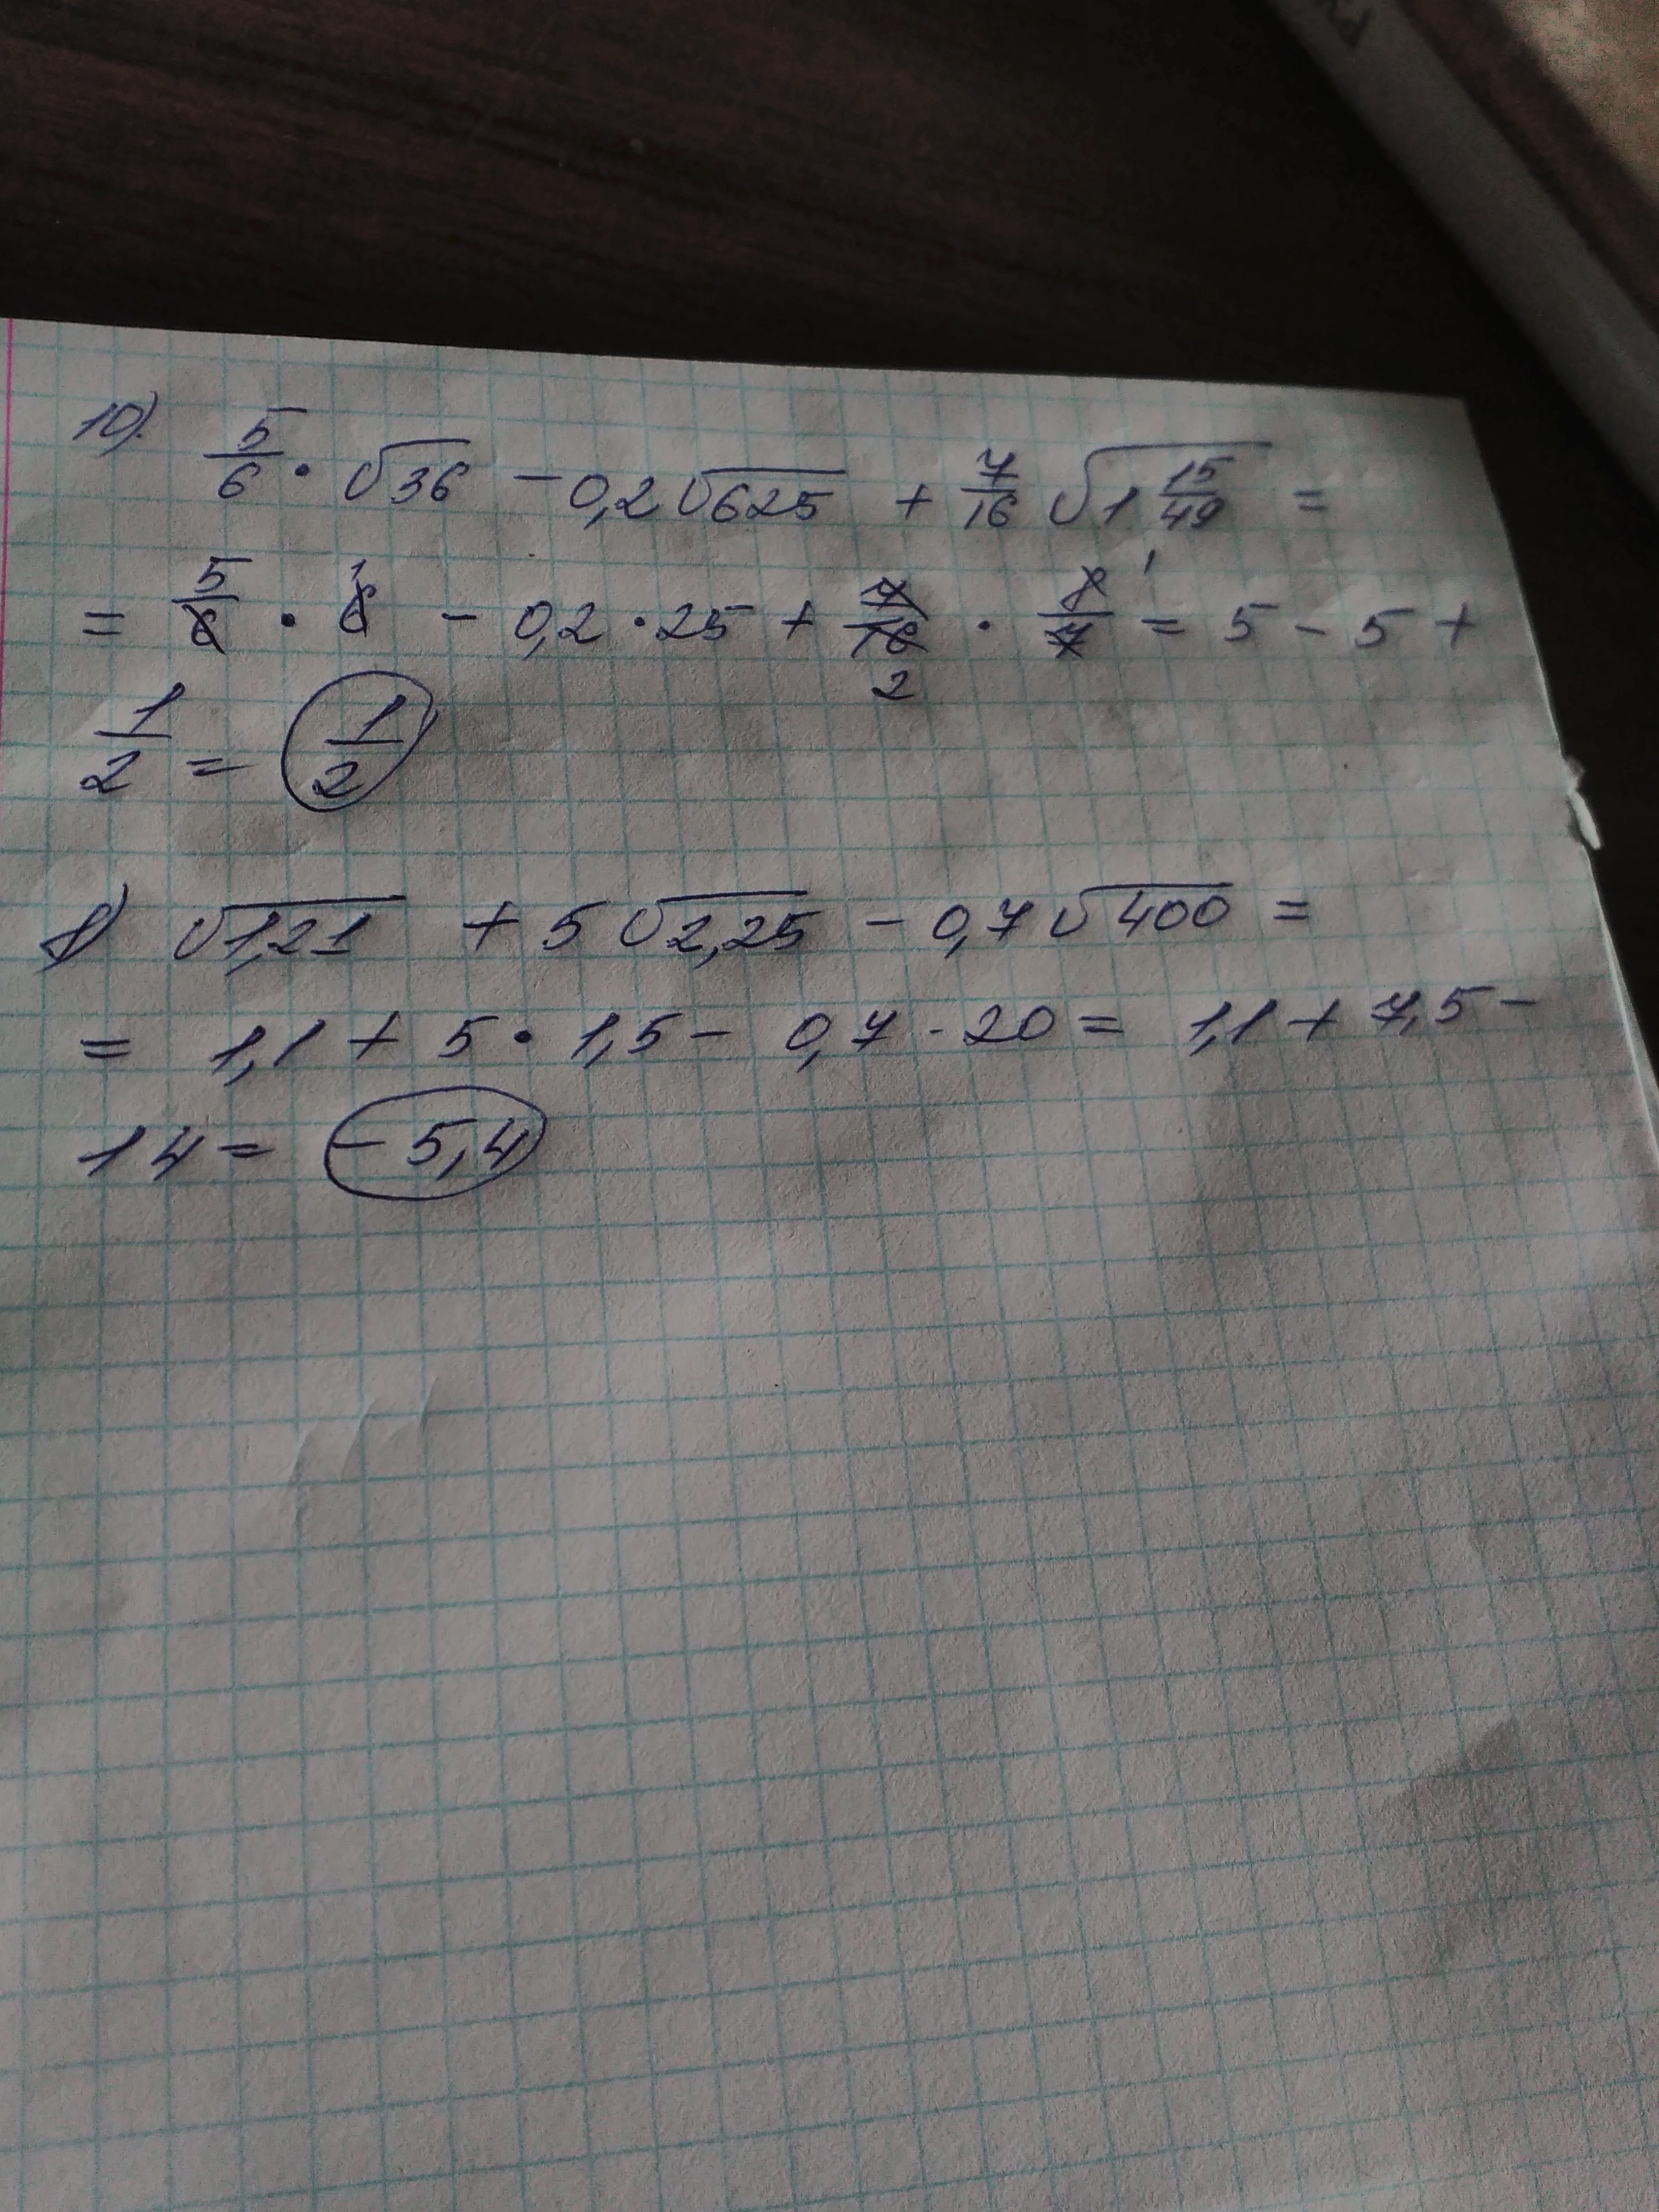 10). 5/6 · √36 − 0,2√625 + 7/16 √1 15/49 =
= 5/6 · 6 1 − 0,2 · 25 + 7/16 2 · 8/7 1 = 5 − 5 +
1/2 = 1/2
8) √1,21 + 5√2,25 − 0,7√400 =
= 1,1 + 5 · 1,5 − 0,7 · 20 = 1,1 + 7,5 −
14 = − 5,4